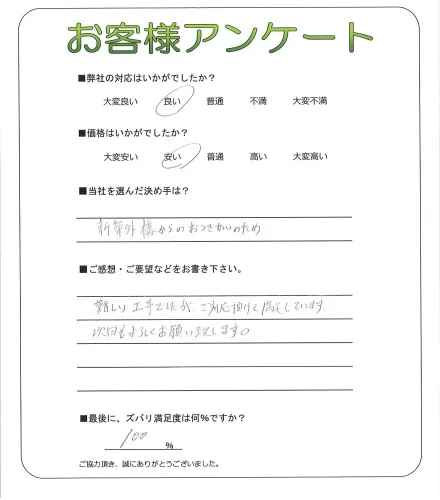 お客様アンケート
■弊社の対応はいかがでしたか?
大変良い 良い 普通 不満 大変不満
■価格はいかがでしたか?
大変安い 安い 普通 高い 大変高い
■当社を選んだ決め手は?
新築外構からのおつきあいのため
■ご感想・ご要望などをお書き下さい。
難しい工事でしたが、ご対応頂けて満足しています。
次回もよろしくお願い致します。
■最後に、ズバリ満足度は何%ですか?
100 %
ご協力頂き、誠にありがとうございました。